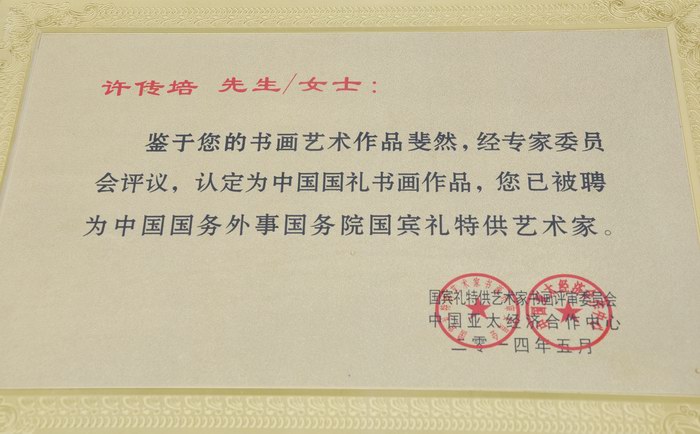 许传培 先生/女士：
鉴于您的书画艺术作品斐然，经专家委员
会评议，认定为中国国礼书画作品，您已被聘
为中国国务外事国务院国宾礼特供艺术家。
国宾礼特供艺术家书画评审委员会
中国亚太经济合作中心
二零一四年五月